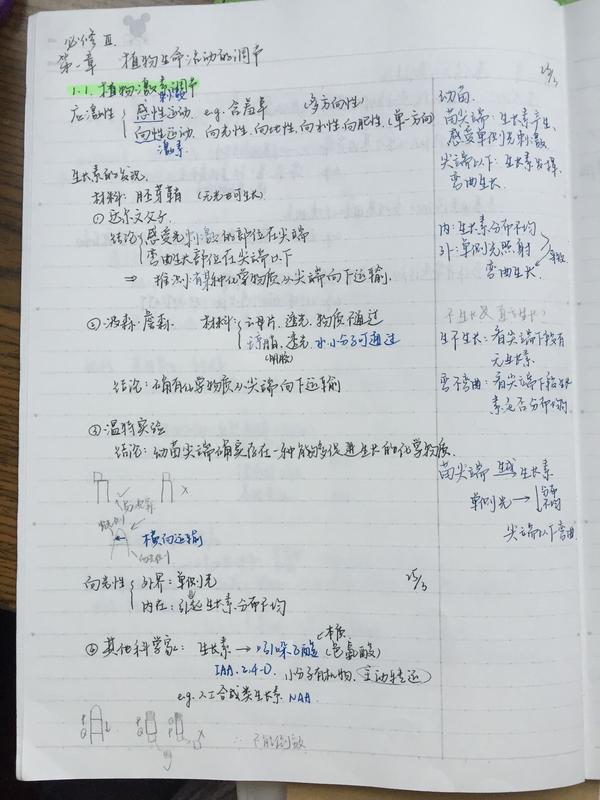 必修Ⅲ
第一章 植物生命活动的调节
1.1. 植物激素调节
刺激
应激性
感性运动 e.g. 含羞草 (多方向性)
向性运动, 向光性, 向地性, 向水性, 向肥性, (单一方向)
激素
生长素的发现
材料: 胚芽鞘 (无光也可生长)
① 达尔文父子
结论 感受光刺激的部位在尖端
弯曲生长部位在尖端以下
⇒ 推测有某种化学物质从尖端向下运输.
② 波森·詹森 材料: 云母片, 透光, 物质不通过
琼脂, 透光 水小分子可通过
(明胶)
结论: 确有化学物质从尖端向下运输
③ 温特实验
结论: 幼苗尖端确实存在一种能够促进生长的化学物质.
横向运输
向光性
外界: 单侧光
内在: 引起生长素分布不均
④ 其他科学家: 生长素 → 吲哚乙酸 (色氨酸)
本质
IAA. 2.4-D 小分子有机物. 主动转运
e.g. 人工合成类生长素 NAA
∴ 不能倒放
幼苗.
苗尖端: 生长素产生,
感受单侧光刺激
尖端以下: 生长素发挥,
弯曲生长.
内: 生长素分布不均
外: 单侧光照射
弯曲生长.
生不生长: 看尖端下段有
无生长素
弯不弯曲: 看尖端下段生长
素是否分布均匀
苗尖端 生长素
单侧光 → 分布不均
尖端以下弯曲.